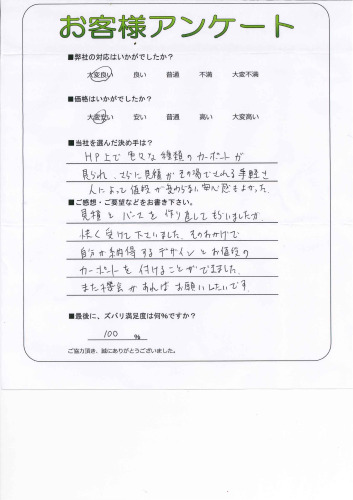 お客様アンケート
■弊社の対応はいかがでしたか？
大変良い 良い 普通 不満 大変不満
■価格はいかがでしたか？
大変安い 安い 普通 高い 大変高い
■当社を選んだ決め手は？
HP上で色々な種類のカーポートが
見られ、さらに見積がその場でされる手軽さ
人によって値段が変わらない安心感もよかった。
■ご感想・ご要望などをお書き下さい。
見積とパースを作り直してもらいましたが
快く受けて下さいました。そのおかげで
自分が納得するデザインとお値段の
カーポートを付けることができました。
また機会があればお願いしたいです。
■最後に、ズバリ満足度は何%ですか？
100 %
ご協力頂き、誠にありがとうございました。